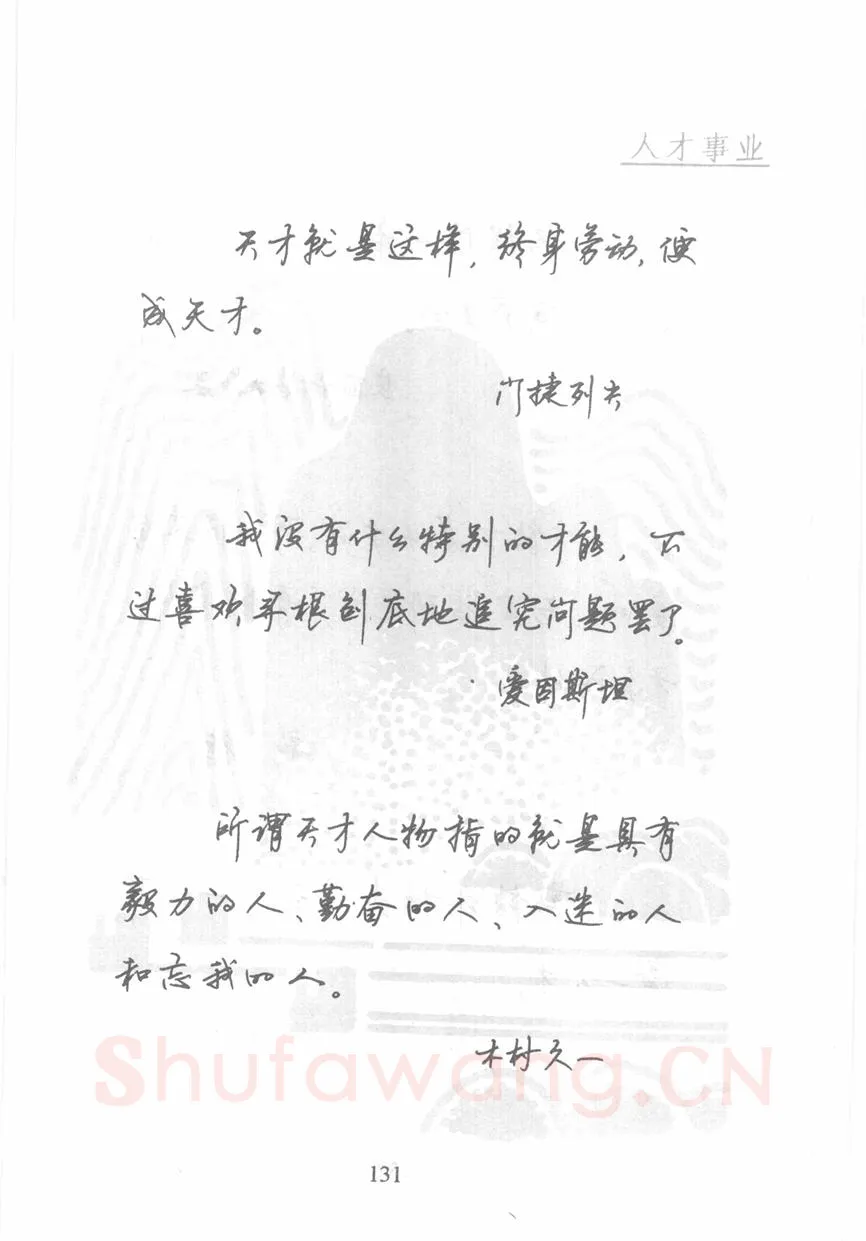 人才事业
天才就是这样，终身劳动，便
成天才。
门捷列夫
我没有什么特别的才能，不
过喜欢寻根刨底地追究问题罢了。
爱因斯坦
所谓天才人物指的就是具有
毅力的人、勤奋的人、入迷的人
和忘我的人。
木村久一
Shufawang.CN
131